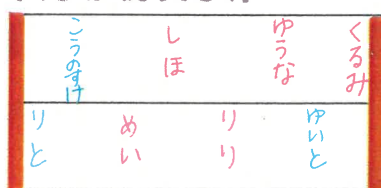 くるみ
ゆうな
しほ
こうのすけ
ゆいと
りり
めい
りと